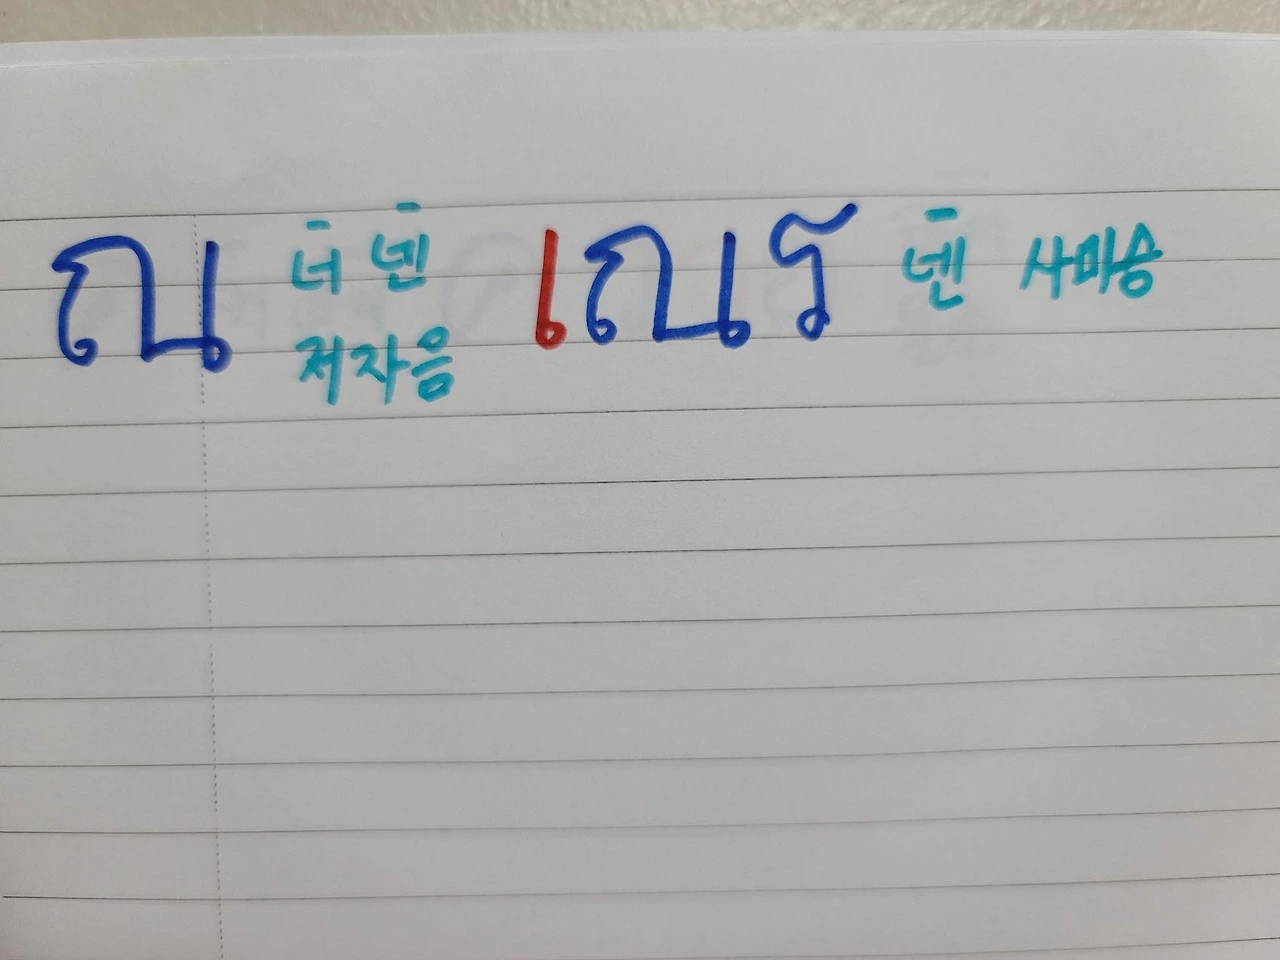 ณ 너 넨 เณร 넨 사미승
저자음